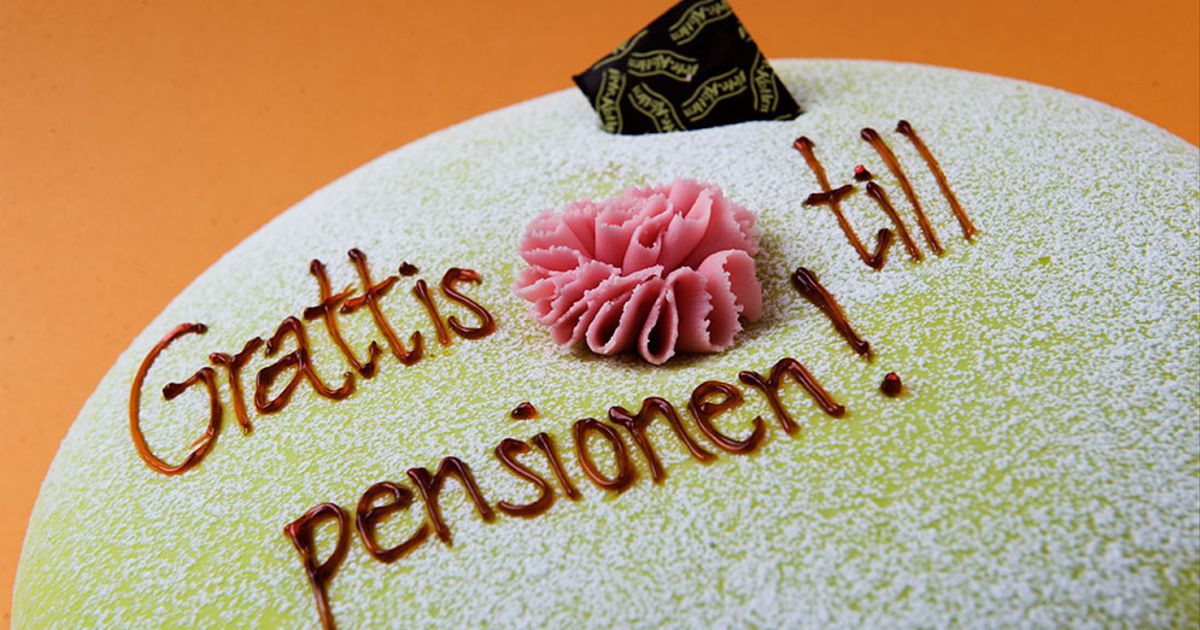 Grattis till
pensionen!